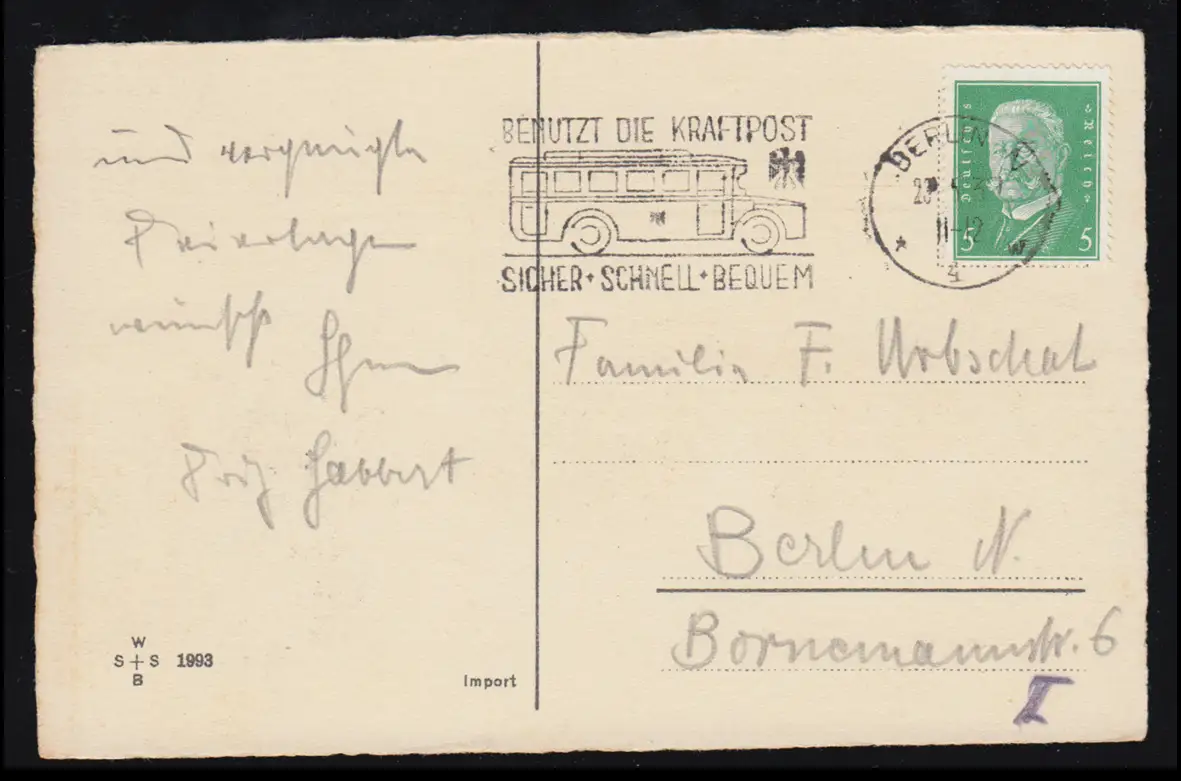 und vergnügte
Feiertage
wünscht
Ihnen
Fritz Gabbert
W
S + S 1993
B
Import
BENUTZT DIE KRAFTPOST
SICHER + SCHNELL + BEQUEM
BERLIN
11-12
* W
4
Deutsches Reich
5 5
Familie F. Urbschat
Berlin N.
Bornemannstr. 6
I